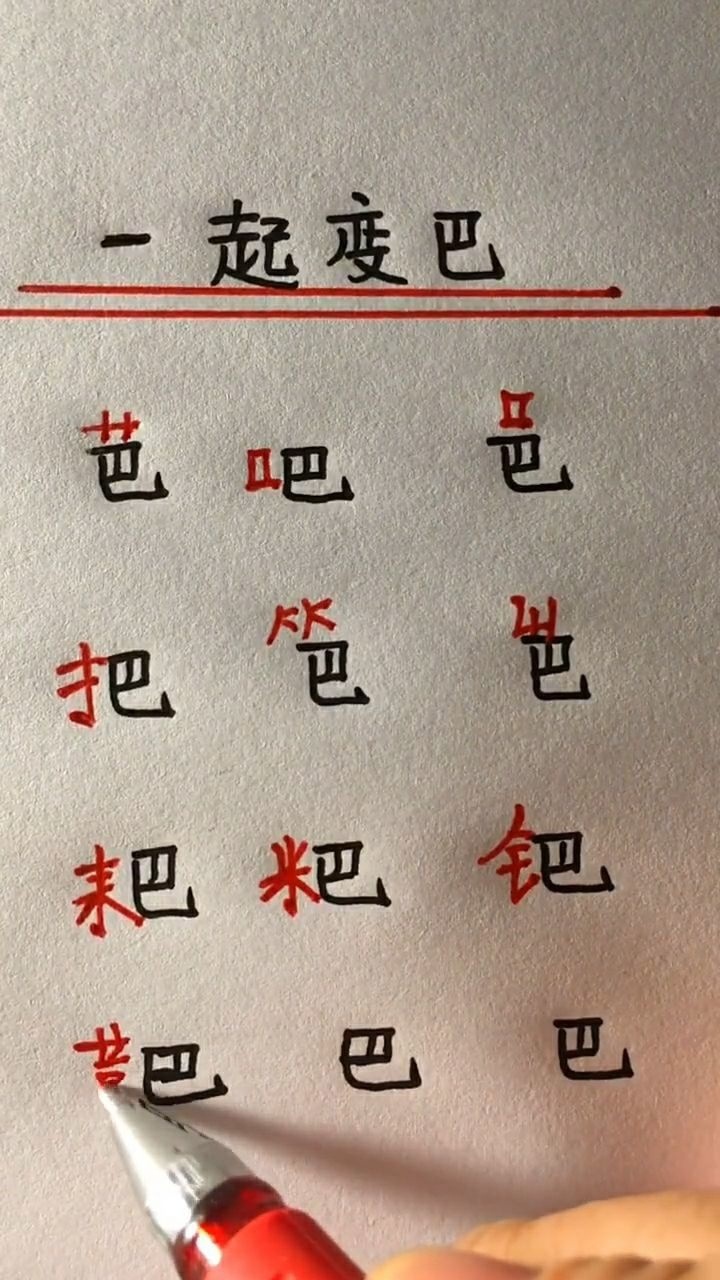 一起变巴
芭 吧 邑
把 笆 岜
耙 粑 钯
靶 巴 巴